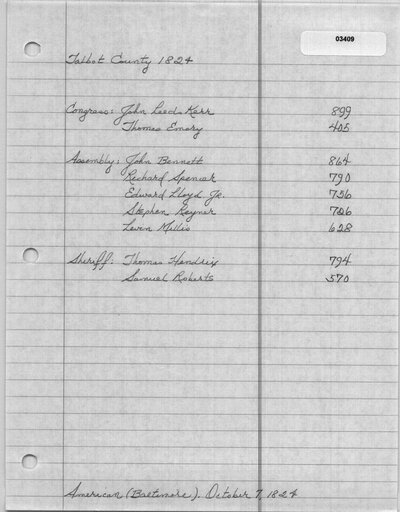 03409
Talbot County 1824
Congress: John Leeds Kerr 899
Thomas Emory 405
Assembly: John Bennett 864
Richard Spencer 790
Edward Lloyd, Jr. 756
Stephen Reyner 726
Leven Millis 628
Sheriff: Thomas Hendrix 794
Samuel Roberts 570
American (Baltimore). October 7, 1824